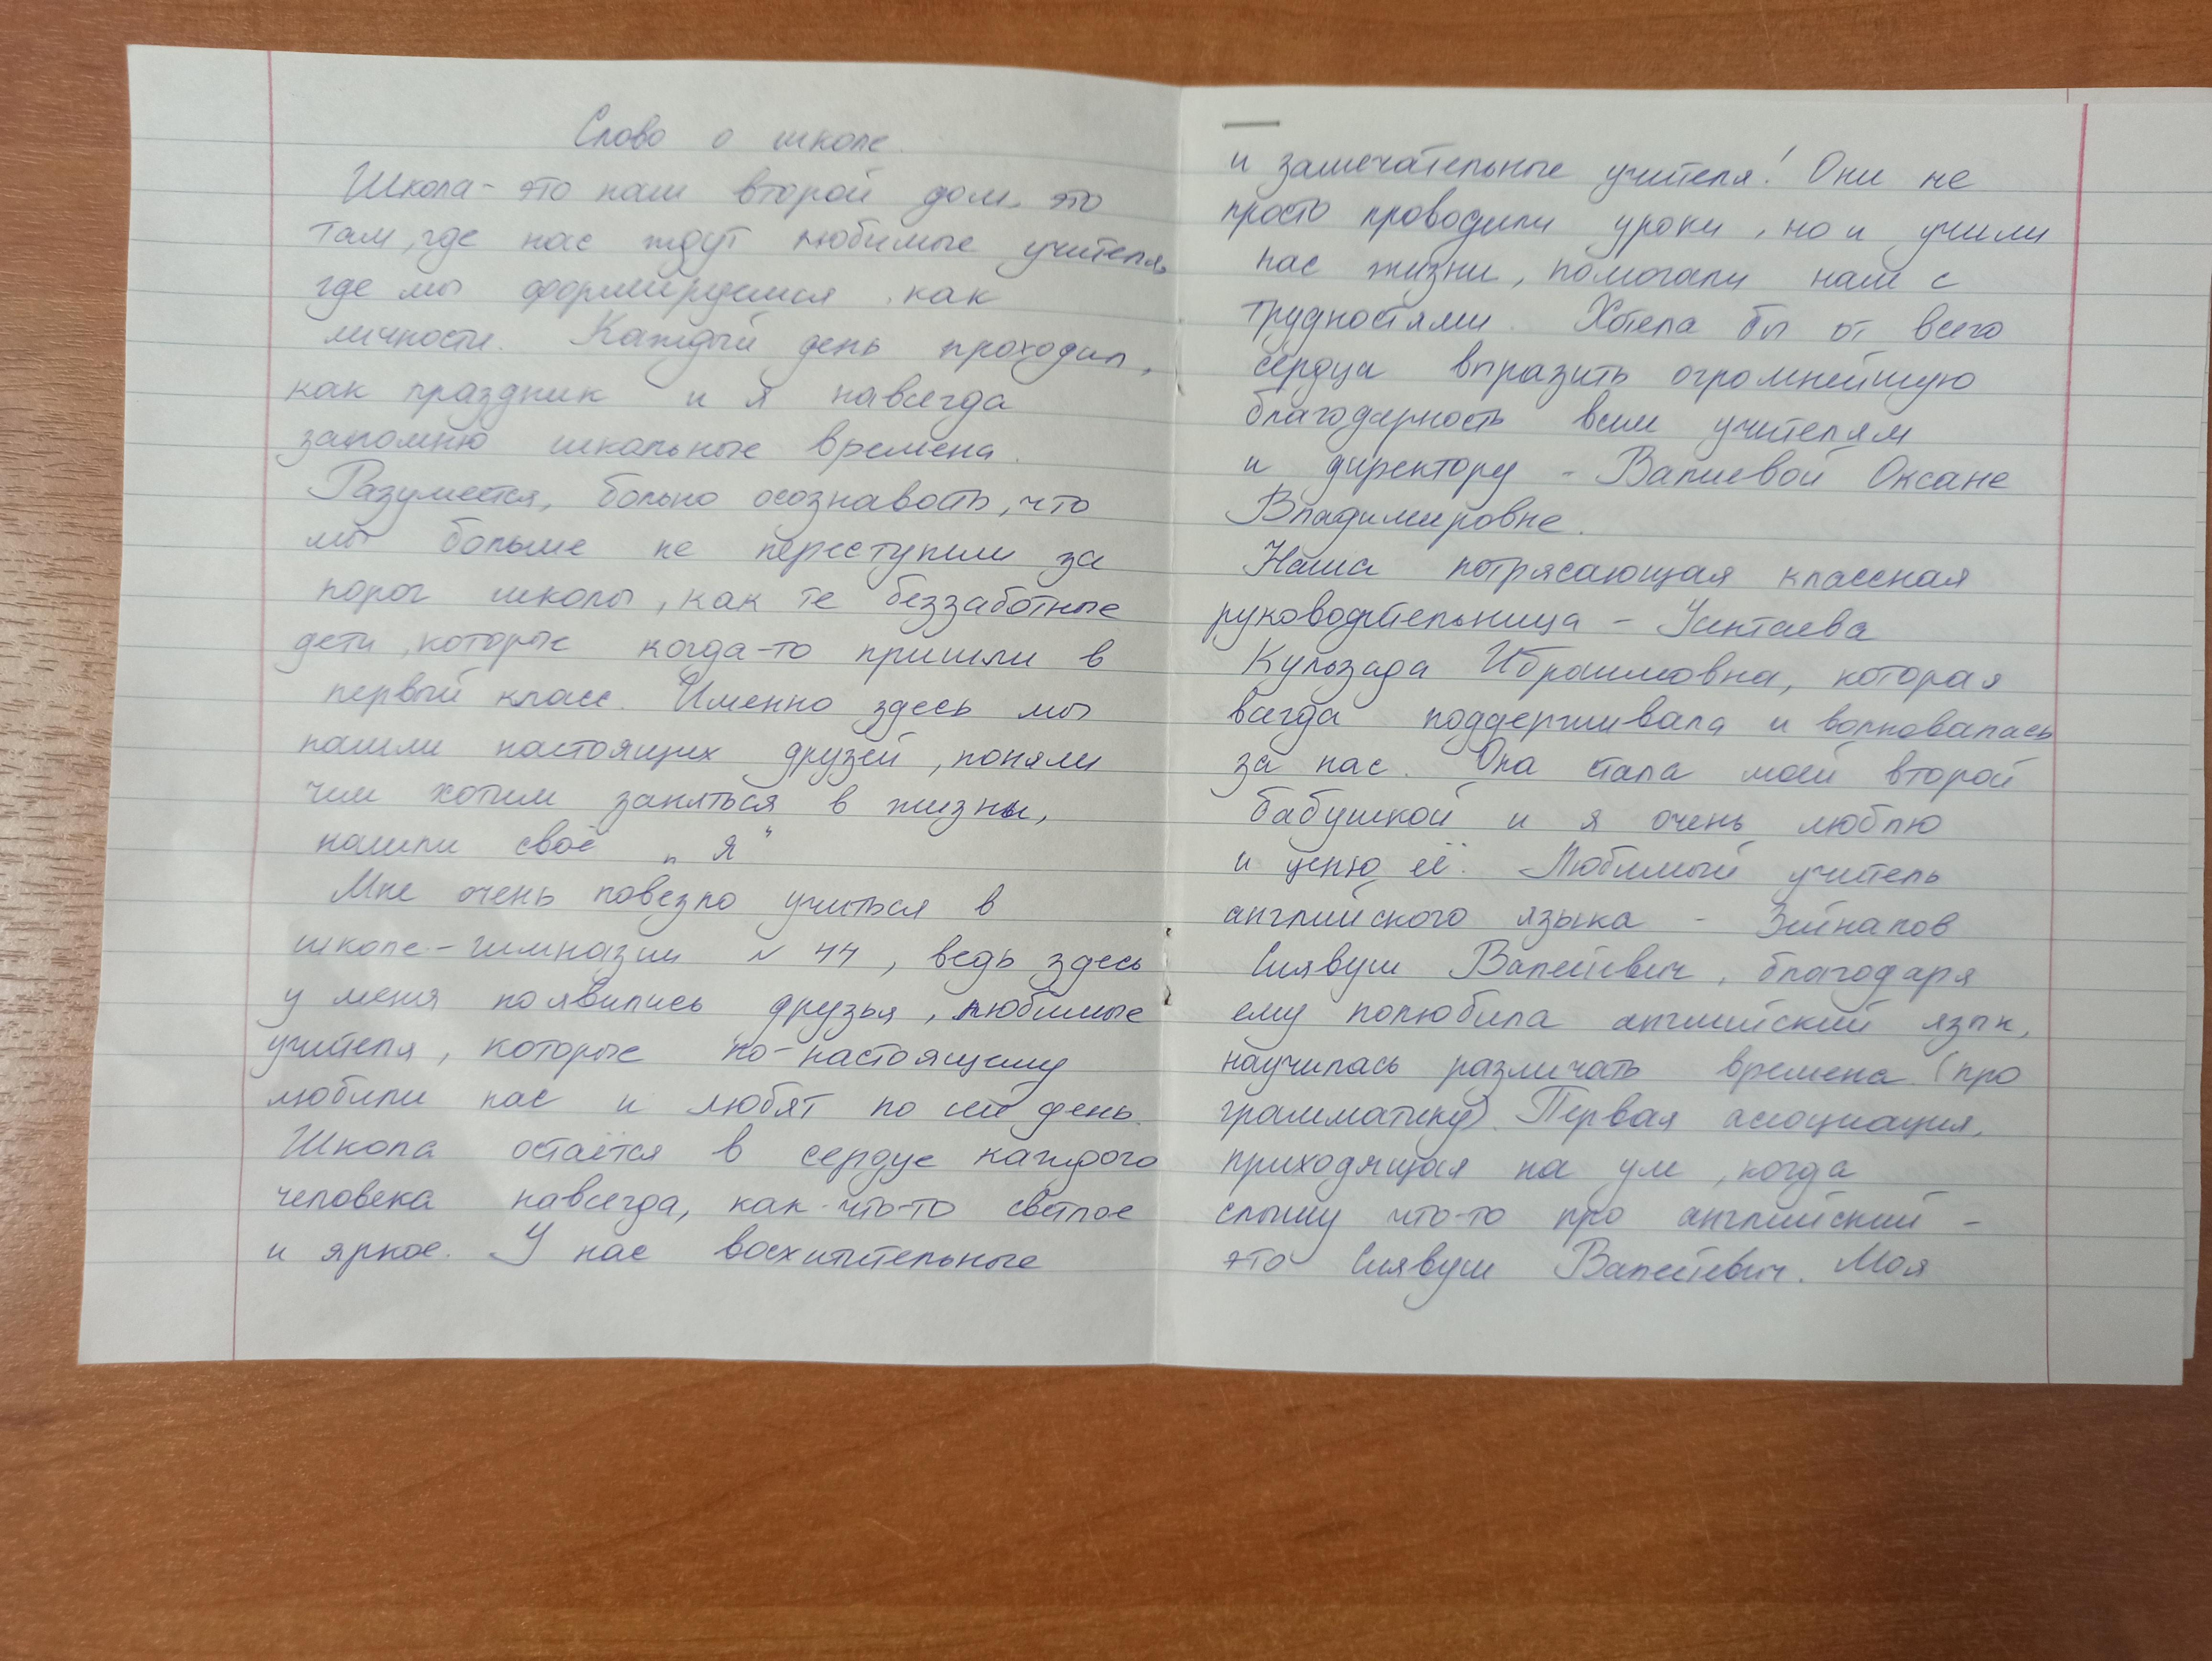 Слово о школе.
Школа - это наш второй дом, это
там, где нас ждут любимые учителя,
где мы формируемся, как
личности. Каждый день проходил,
как праздник и я навсегда
запомню школьные времена.
Разумеется, больно осознавать, что
мы больше не переступим за
порог школы, как те беззаботные
дети, которые когда-то пришли в
первый класс. Именно здесь мы
нашли настоящих друзей, поняли
чем хотим заняться в жизни,
нашли своё „Я"
Мне очень повезло учиться в
школе-гимназии № 44, ведь здесь
у меня появились друзья, любимые
учителя, которые по-настоящему
любили нас и любят по сей день.
Школа остаётся в сердце каждого
человека навсегда, как что-то светлое
и яркое. У нас восхитительные
и замечательные учителя! Они не
просто проводили уроки, но и учили
нас жизни, помогали нам с
трудностями. Хотела бы от всего
сердца выразить огромнейшую
благодарность всем учителям
и директору - Валиевой Оксане
Владимировне.
Наша потрясающая классная
руководительница -
Кульзада Ибраимовна, которая
всегда поддерживала и волновалась
за нас. Она стала моей второй
бабушкой и я очень люблю
и ценю её. Любимый учитель
английского языка - Зейналов
Сиявуш Валеевич, благодаря
ему полюбила английский язык,
научилась различать времена (про
грамматику). Первая ассоциация,
приходящая на ум, когда
слышу что-то про английский -
это Сиявуш Валеевич. Моя